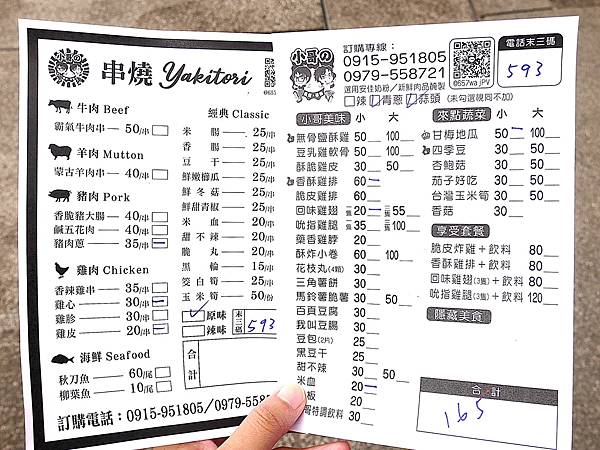 串燒 Yakitori
牛肉 Beef
霸氣牛肉串 — 50/串
羊肉 Mutton
蒙古羊肉串 — 40/串
豬肉 Pork
香脆豬大腸 — 40/串
鹹五花肉 — 40/串
豬肉蔥 — 35/串 一
雞肉 Chicken
香辣雞串 — 35/串
雞心 — 30/串 一
雞胗 — 30/串
雞皮 — 20/串 一
海鮮 Seafood
秋刀魚 — 60/尾
柳葉魚 — 10/尾
經典 Classic
米腸 — 25/串
香腸 — 25/串
豆干 — 25/串
鮮嫩櫛瓜 — 25/串
鮮冬菇 — 25/串
鮮甜青椒 — 25/串
米血 — 20/串
甜不辣 — 20/串
脆丸 — 20/串
黑輪 — 15/串
筊白筍 — 25/串
玉米筍 — 50/份
✓原味
辣味
末三碼 593
合計
訂購電話:0915-951805/0979-558
小哥の
訂購專線:
0915-951805
0979-558721
選用安佳奶粉/新鮮肉品醃製
□辣 ☑青蔥 ☑蒜頭 (未勾選視同不加)
電話末三碼
593
小哥美味 小 大
無骨鹽酥雞 50 100
豆乳雞軟骨 50 100
酥脆雞皮 30 50
香酥雞排 60 一
脆皮雞排 60
回味雞翅 20 一 三隻 55
吮指雞腿 35 三隻 100
藥香雞脖 20
酥炸小卷 60 100
花枝丸(4顆) 30
三角薯餅 30
馬鈴薯脆薯 30 50
百頁豆腐 30
我叫豆腸 30
豆包(2片) 25
黑豆干 25
甜不辣 30 50
米血 20 一
板 20
哥特調飲料 30
來點蔬菜 小 大
甘梅地瓜 50 一 100
四季豆 30 50
杏鮑菇 30 50
茄子好吃 30 50
台灣玉米筍 30 50
香菇 30
享受套餐
脆皮炸雞+飲料 80
香酥雞排+飲料 80
回味雞翅(3隻)+飲料 80
吮指雞腿(3隻)+飲料 120
隱藏美食
合計
165